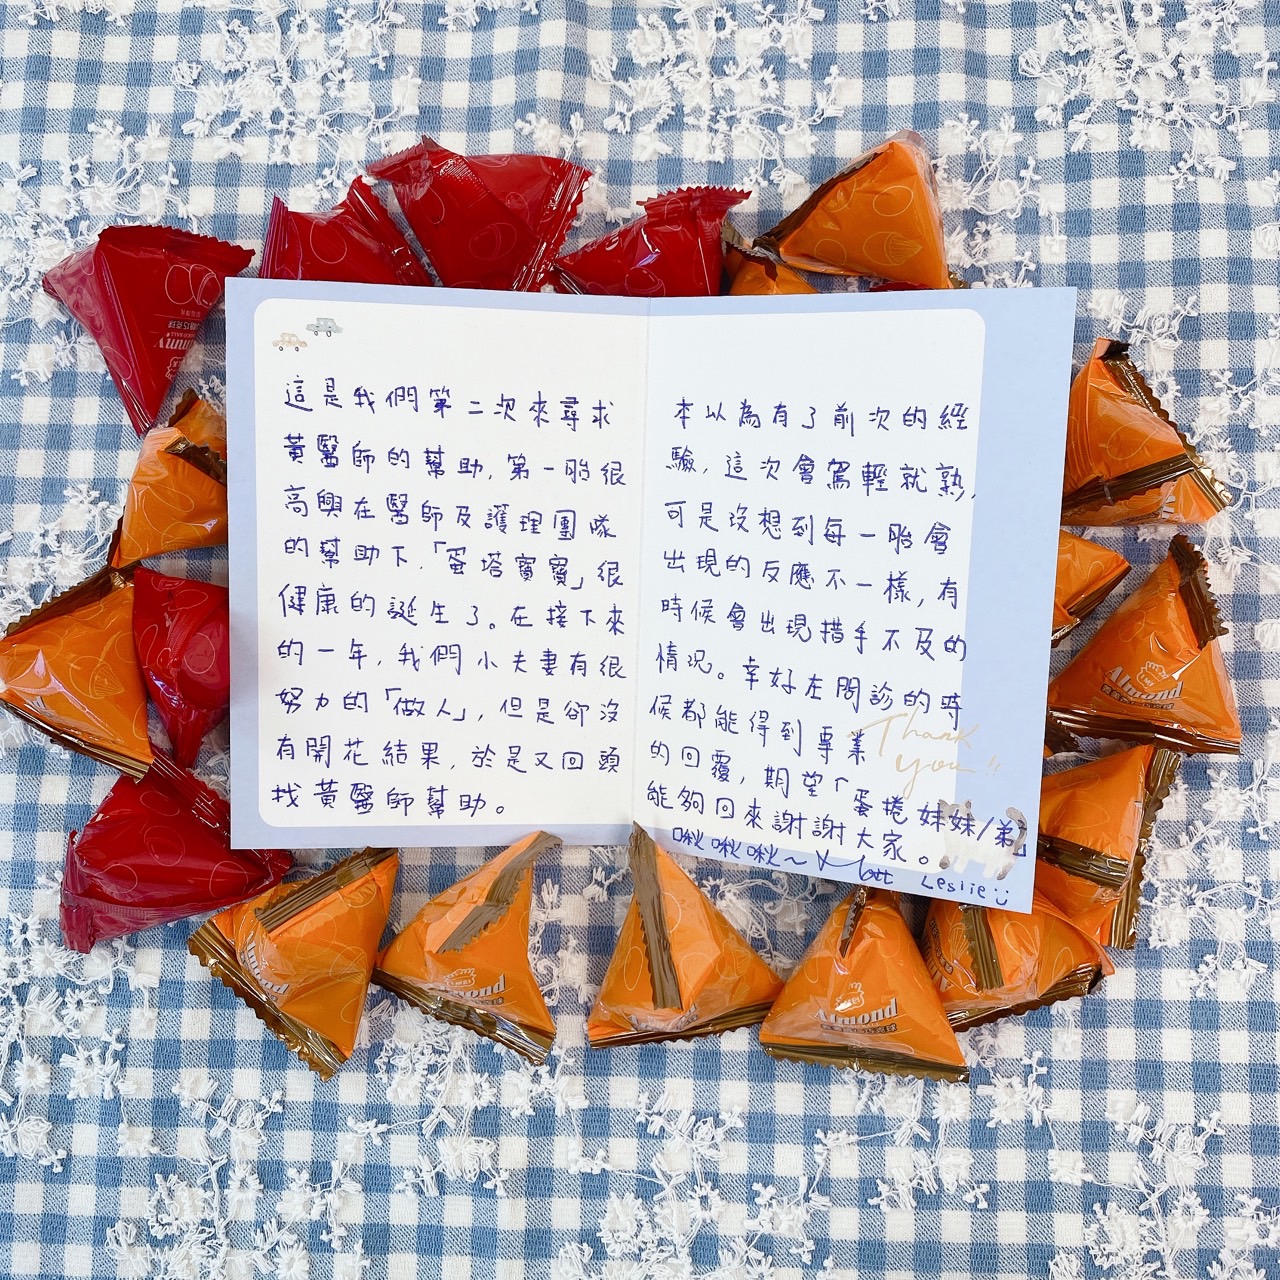 這是我們第二次來尋求
黃醫師的幫助,第一胎很
高興在醫師及護理團隊
的幫助下,「蛋塔寶寶」很
健康的誕生了。在接下來
的一年,我們小夫妻有很
努力的「做人」,但是卻沒
有開花結果,於是又回頭
找黃醫師幫助。
本以為有了前次的經
驗,這次會駕輕就熟,
可是沒想到每一胎會
出現的反應不一樣,有
時候會出現措手不及的
情況。幸好在問診的時
候都能得到專業
的回覆,期望「蛋捲妹妹/弟」
能夠回來謝謝大家。
啾啾啾~
Leslie
Thank
you!!
Almond
Almond
Almond
Almond